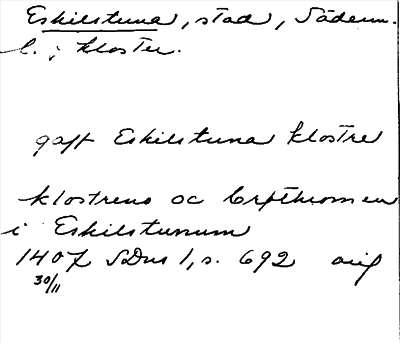 Eskilstuna, stad, Söderm.
l.; kloster.
gaff Eskilstuna klostre
klostrens oc
i Eskilstunum
1407 SDns 1, s. 692 orig
30/11